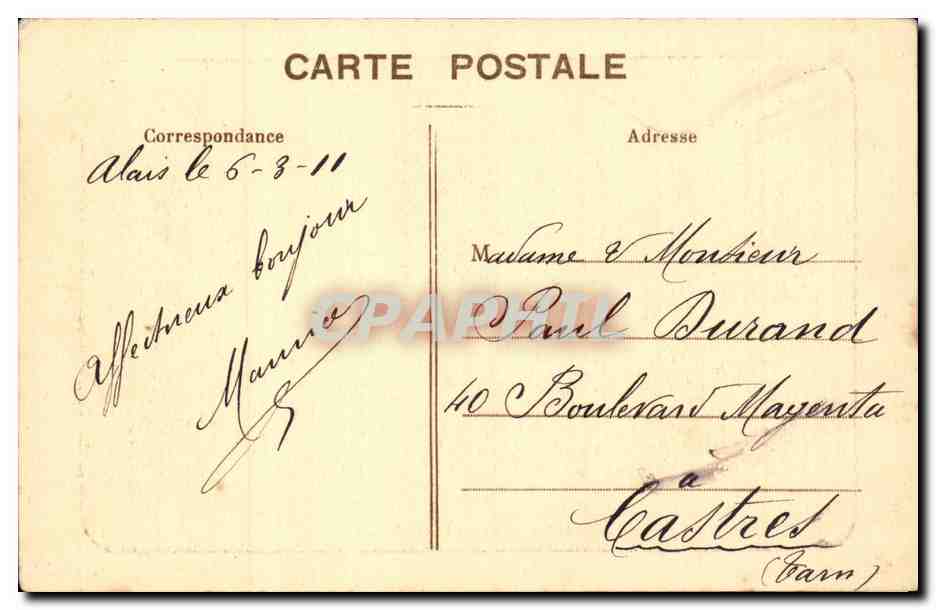 CARTE POSTALE
Correspondance
Alais le 6-3-11
Affectueux bonjour
Adresse
Madame & Monsieur
Paul Durand
40 Boulevard Magenta
à
Castres
(Tarn)
CPAPHIL